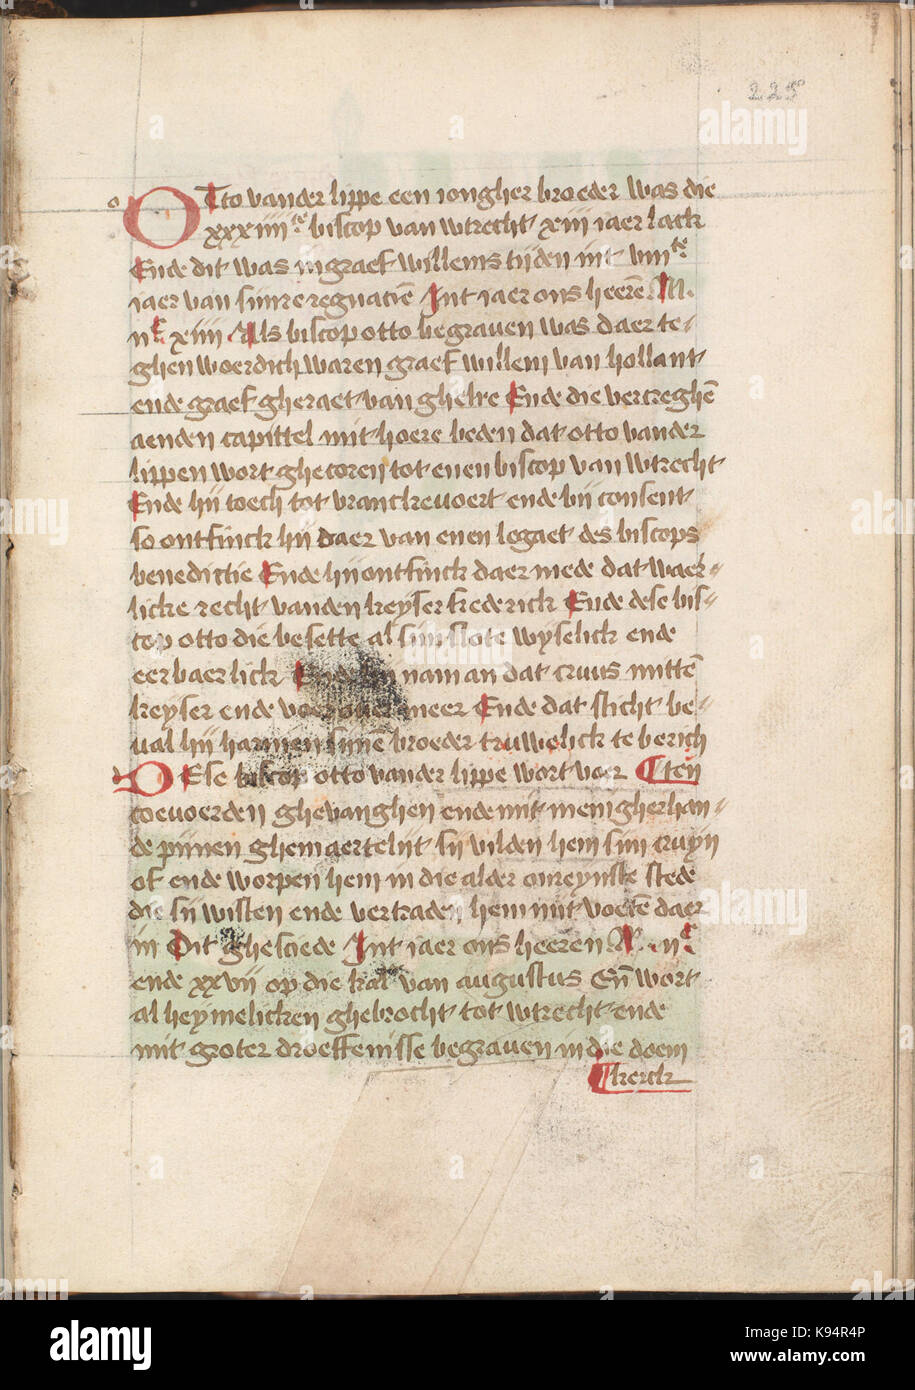 225
OTto vander lippe een iongher broeder was die
xxxiiii te biscop van wtrecht xiii iaer lack
Ende dit was in graef willems tijden int viii te
iaer van sinre regnaciē Int iaer ons heerē M.
iic xiiii Als biscop otto begrauen was daer te-
ghenwoerdich waren graef willem van hollant
ende graef gheraet van ghelre Ende die vercreghē
aenden capittel mit hoere beden dat otto vander
lippen wort ghecoren tot enen biscop van wtrecht
Ende hij toech tot vranckevoert ende bij consent
so ontfinck hij daer van enen legaet des biscops
benedictie Ende hij ontfinck daer mede dat waer-
licke recht vanden keyser frederick Ende dese bis-
cop otto die besette al sijn slote wyselick ende
eerbaerlick Ende hij nam an dat cruus mittē
keyser ende voer over meer Ende dat sticht be-
ual hij harmen sijnē broeder truwelick te berich
DEse biscop otto vander lippe wort voer ten
coevoerden ghevanghen ende mit menigherhan-
de pijnen ghemaertelijt sij vilden hem sijn cruyn
of ende worpen hem in die alder onreynste stede
die sij wisten ende vertraden hem mit voetē daer
in Dit ghesciede Int iaer ons heeren M. iic
ende xxvii op die kal' van augustus En̄ wort
al heymelicken ghebrocht tot wtrecht ende
mit groter droeffenisse begrauen in die doem
kerck
a alamy
alamy
Image ID: K94R4P
www.alamy.com